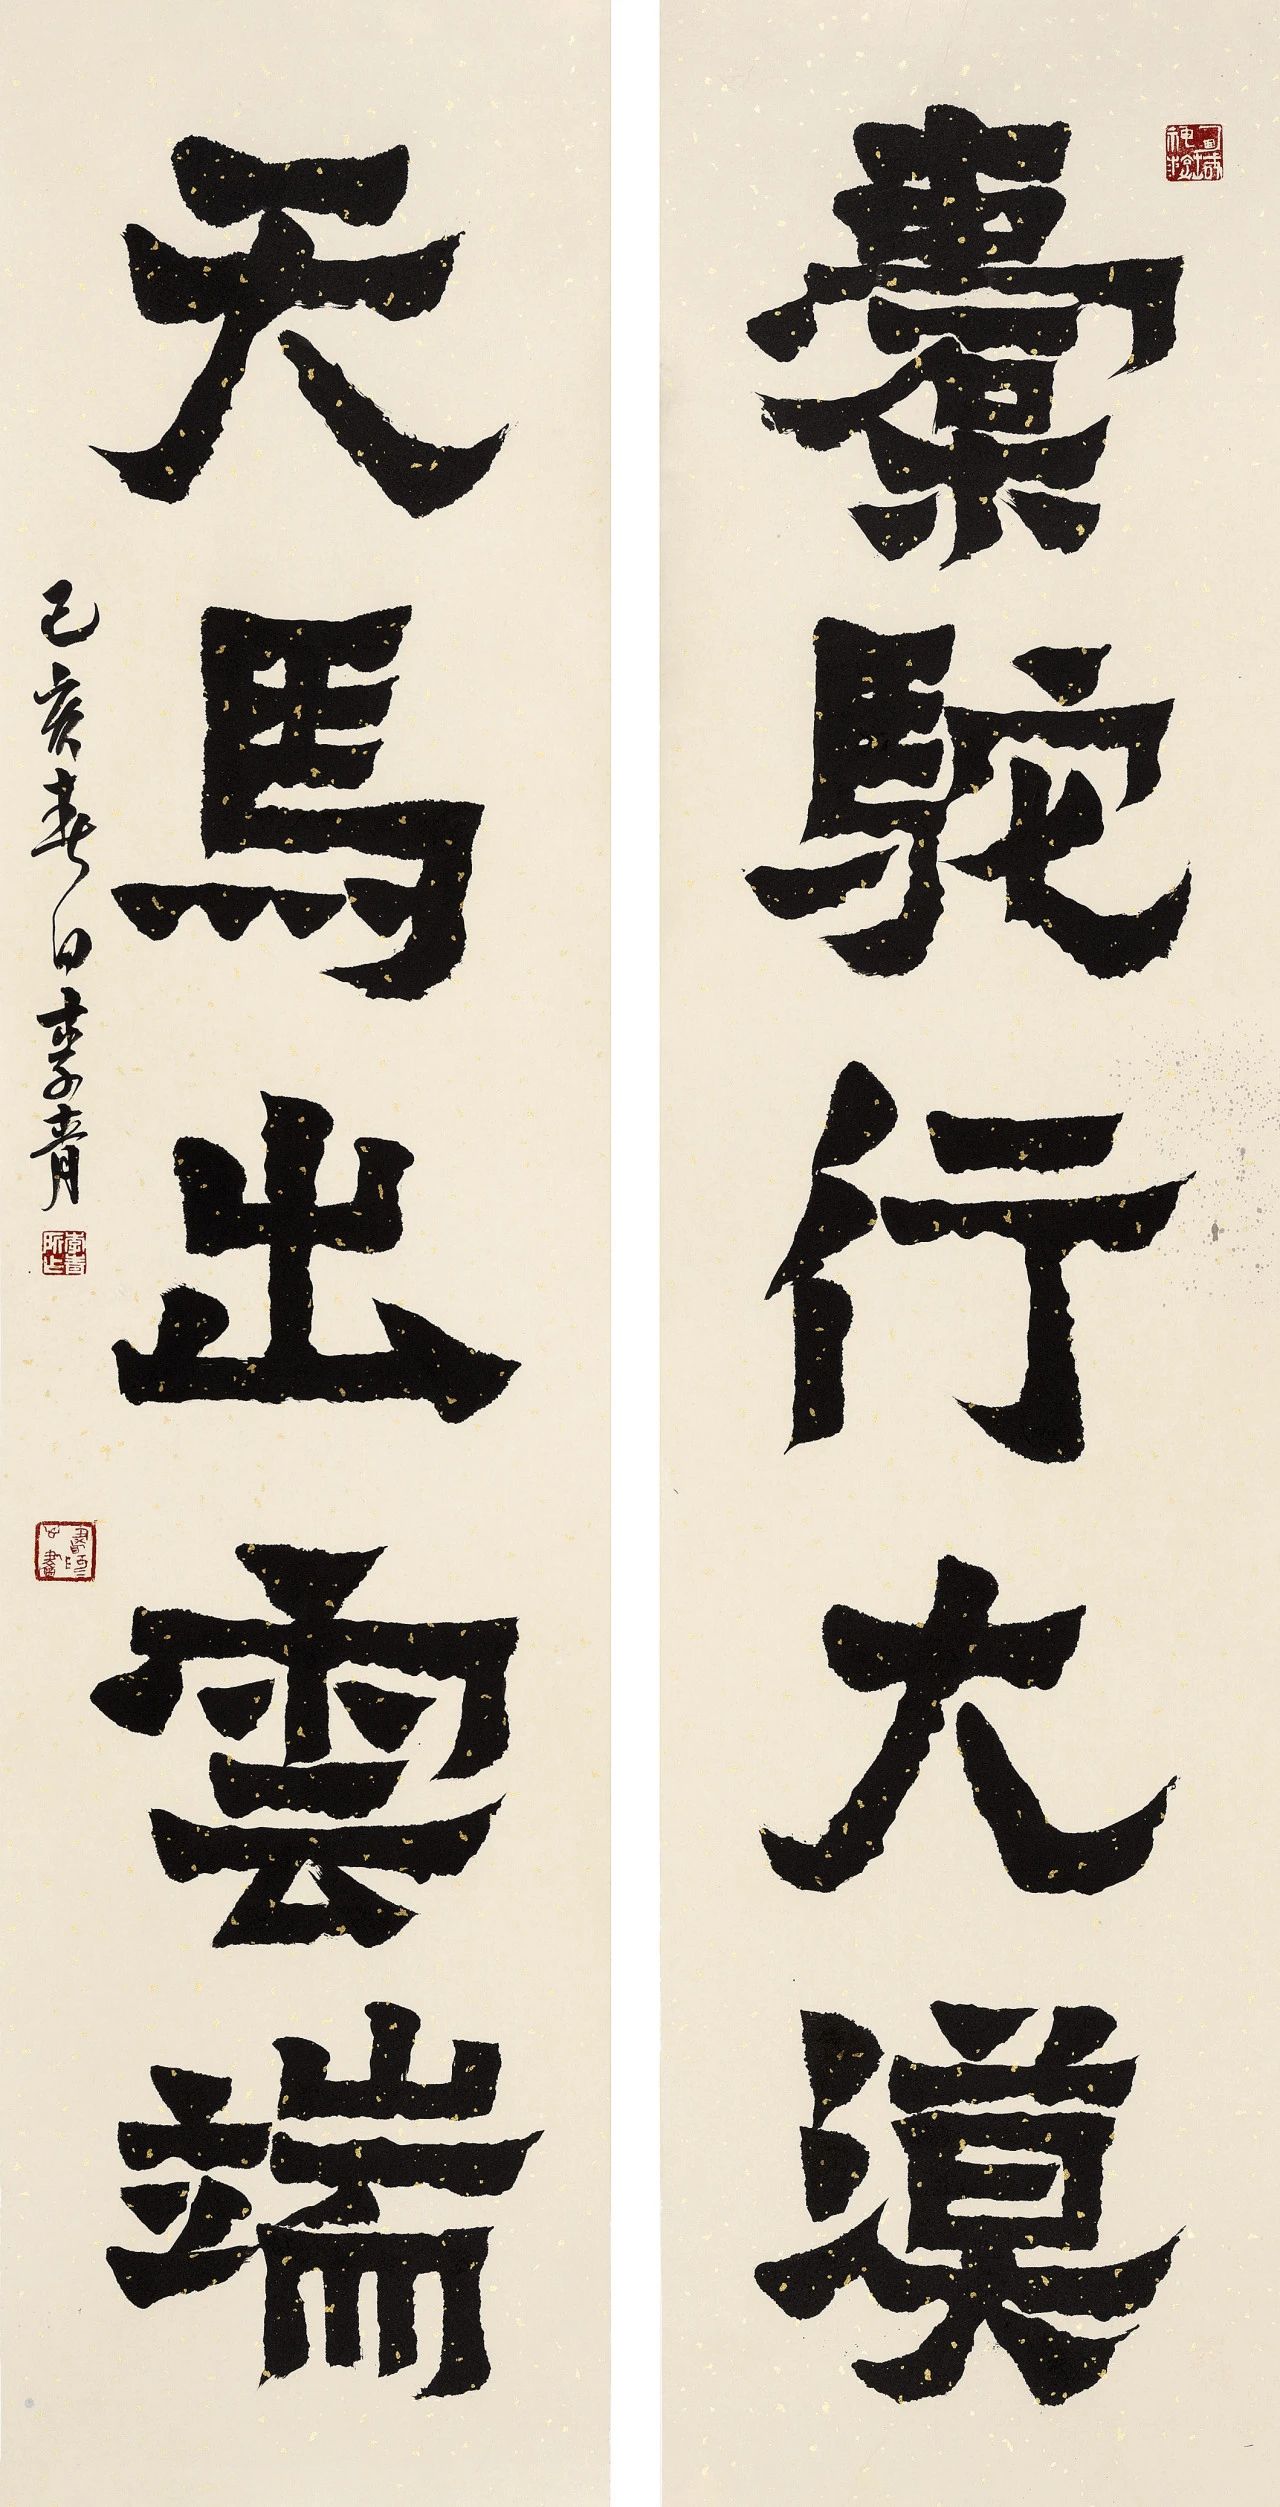 橐駝行大漠
天馬出雲端
己亥春日李青